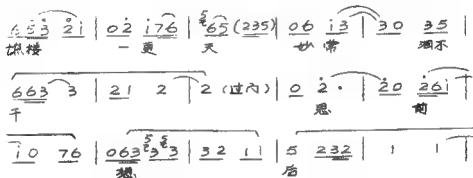 6 5 3 2 i | 0 2 i 7 6 | 6 5 (2 3 5) | 0 6 i 3 | 3 0 3 5
谯楼 一更 天 妙常 泪不
6 6 3 3 | 2 1 2 | 2 (过门) | 0 2 · | 2 0 2 6 i
干 思 前
i 0 7 6 | 0 6 3 3 3 | 3 2 1 1 | 5 2 3 2 | 1 1
想 后